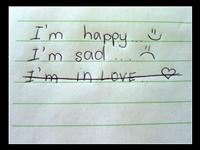 I'm happy... ☺
I'm sad.... ☹
I'm in LOVE... ♡